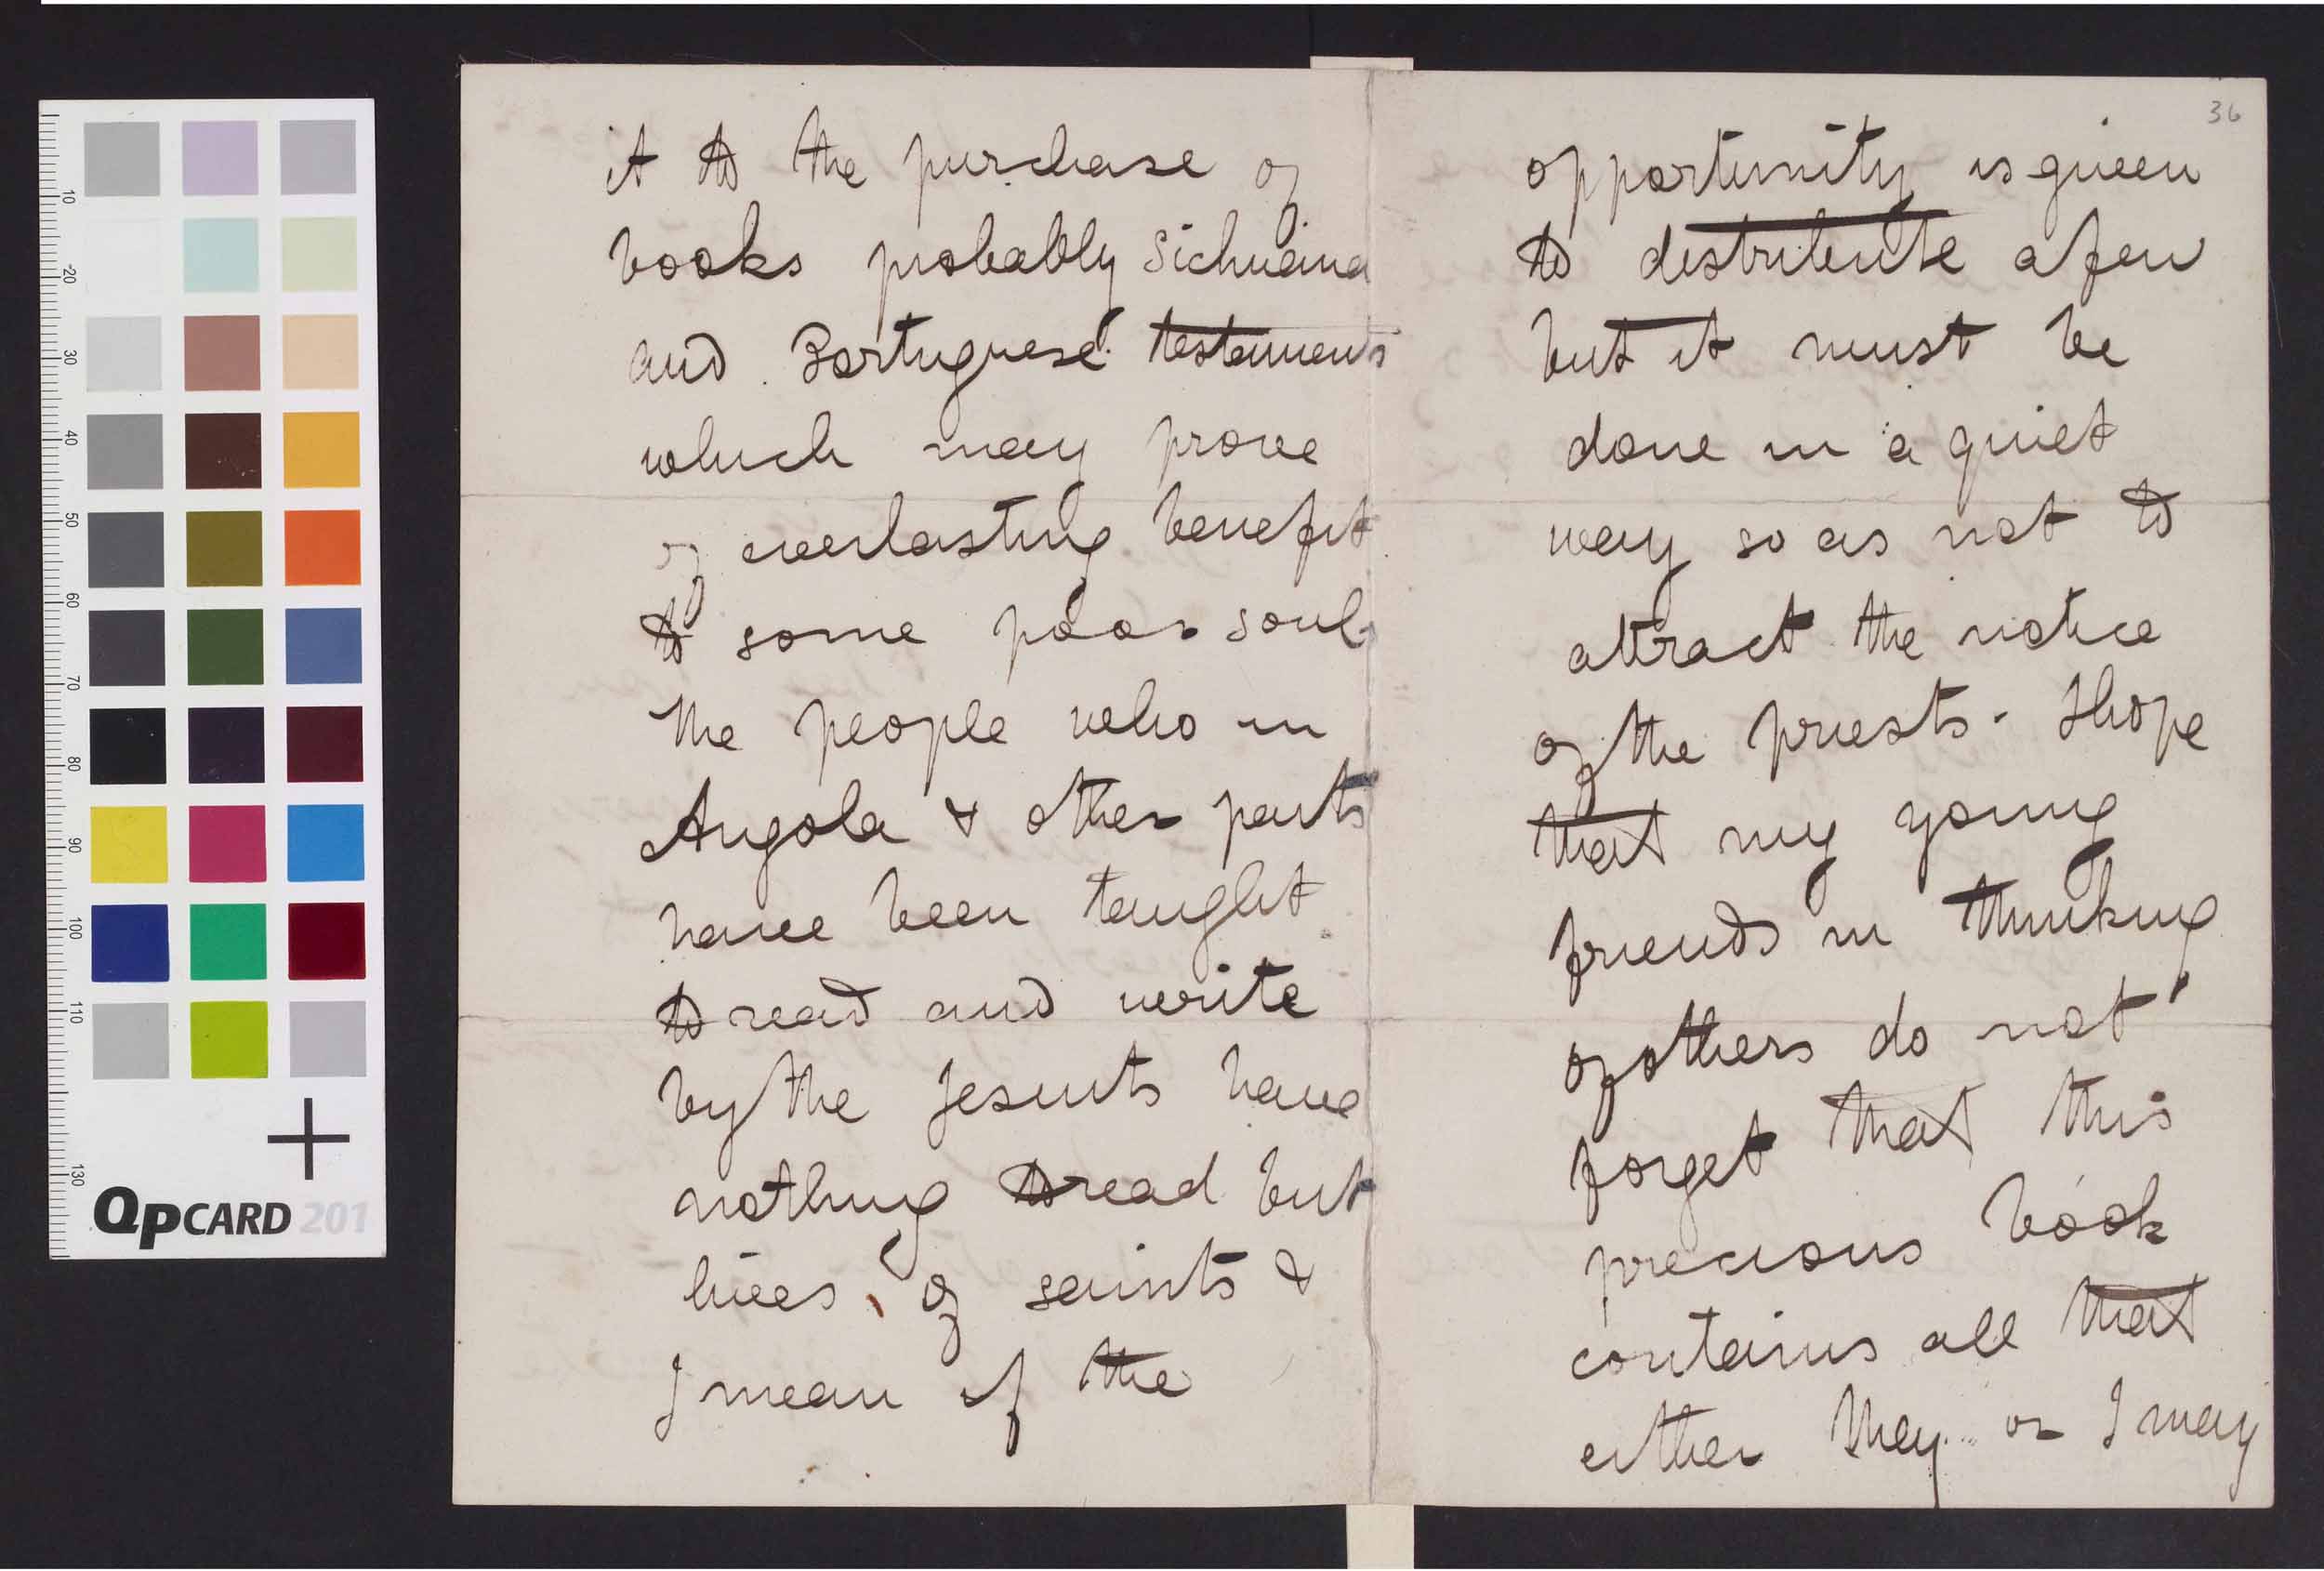 10
20
30
40
50
60
70
80
90
100
110
130
QpCARD 201
it to the purchase of
books probably Sichuana
and Portuguese testaments
which may prove
of everlasting benefit
to some poor souls
the people who in
Angola & other parts
have been taught
to read and write
by the Jesuits have
nothing to read but
lives of saints &
I mean if the
36
opportunity is given
to distribute a few
but it must be
done in a quiet
way so as not to
attract the notice
of the priests - I hope
that my young
friends in thinking
of others do not
forget that this
precious book
contains all that
either they or I may